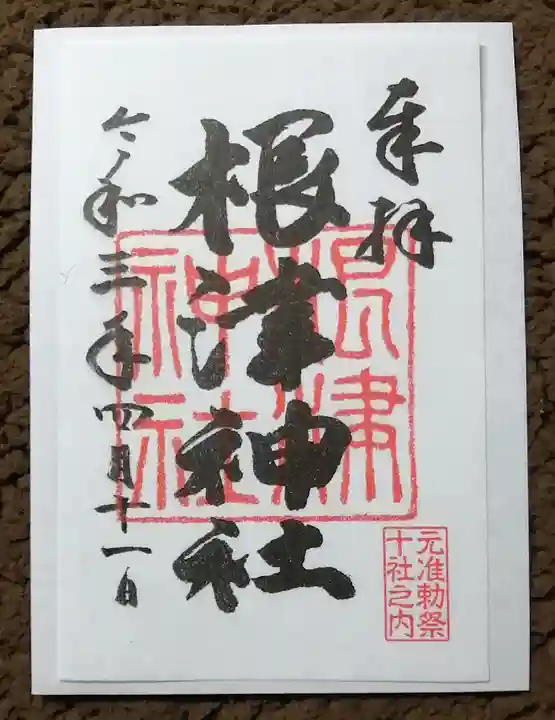 奉拝
根津神社
令和三年四月十一日
根津
神社
元准勅祭
十社之内